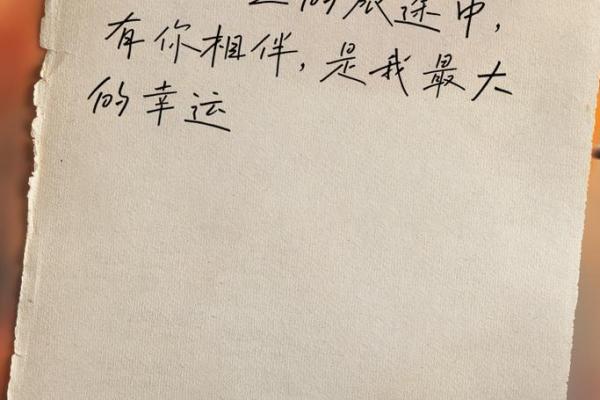 的旅途中,
有你相伴,是我最大
的幸运